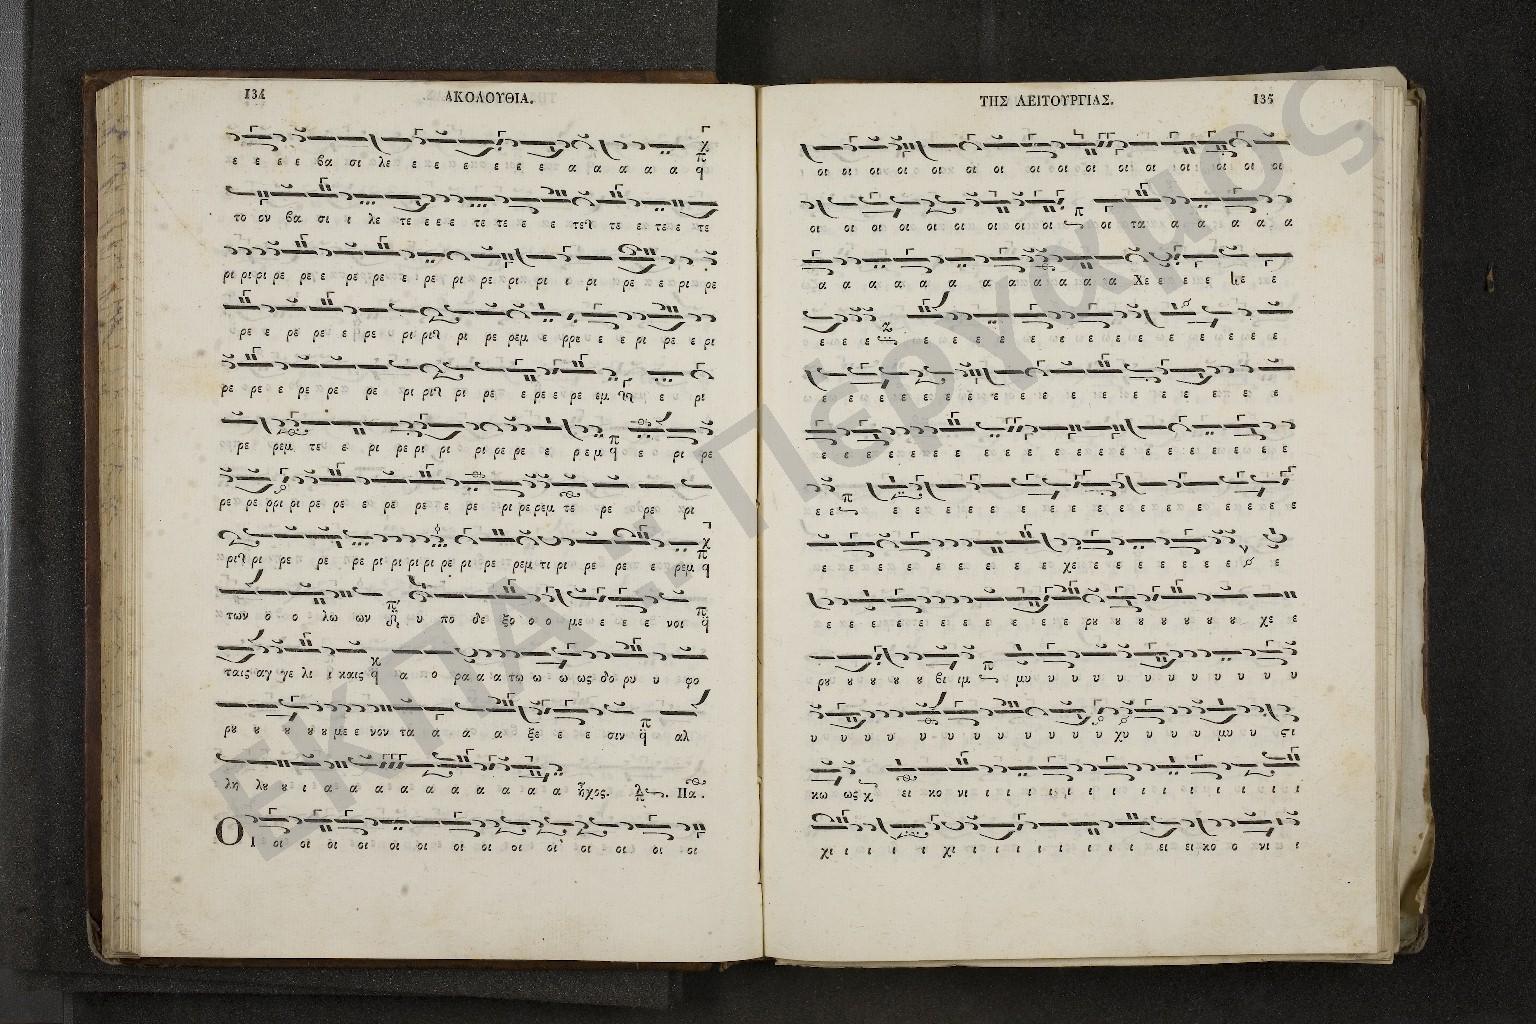 134
ΑΚΟΛΟΥΘΙΑ.
ε ε ε ε βα σι λε ε ε ε ε ε ε ε α α α α α
το ον βα σι ι λε τε ε ε ε τε τε ε ε τε ε τε
ρι ρι ρι ρε ρε ε ρε ρε ε ρε ρι ρε ρι ρι ι ρι ρε ε ρι ρε
ρε ε ρε ρε ε ρε ρι ρι ρι ρε ρεμ ε ρρε ε ε ρι ρε ε ρι
ρε ρε ε ρε ρε ρε ρι ρι ρι ρε ε ρε ε ρε εμ ε ρι
ρε ρεμ τε ε ρι ρε ρι ρι ρι ρε ρε ε ρεμ ε ρι ρε
ρε ρε ρρι ρι ρε ρε ρε ε ρε ρε ε ρε ρι ρε ρεμ τε ρε ρε ρι
ρι ρι ρε ρε ρε ρι ρι ρι ρι ρε ρι ρε ρεμ τι ρι ρε ρε ε ρεμ
των ο ο λω ων υ πο δε ξο ο ο με ε ε ε νοι
ταις αγ γε λι ι καις α ο ρα α α τω ω ω ως δο ρυ υ φο
ρυ υ υ υ υ με ε νον τα α α α ξε ε ε σιν αλ
λη λυ υ ι α α α α α α α α α α ἦχος. Πα.
Ο ι οι οι οι οι οι οι οι οι οι οι οι οι οι οι
ΕΚΠΑ - Πέργαμος
ΤΗΣ ΛΕΙΤΟΥΡΓΙΑΣ.
135
οι οι οι οι οι οι οι οι οι οι οι οι οι οι οι οι
οι οι οι οι οι οι οι οι οι οι τα α α α α α
α α α α α α α α α α α Χε ε ε ε ε ε
ε ε ε ε ε ε ε ε ε ε ε ε ε ε ε ε ε
ε ε ε ε ε ε ε ε ε ε ε ε ε ε ε ε ε
ε ε ε ε ε ε ε ε ε ε ε ε ε ε ε ε ε ε
ε ε ε ε ε ε ε ε ε ε ε ε ε ε ε ε ε
ε ε ε ε ε ε ε ε ε χε ε ε ε ε ε ε ε ε
ε ε ε ε ε ε ε ε ε ε ε ρυ υ υ υ υ υ υ χε ε
ρυ υ υ υ υ βι ιμ μυ υ υ υ υ υ υ υ υ υ υ
υ υ υ υ υ υ υ υ υ υ υ υ χυ υ υ υ μυ υ ςι
κω ως ει κο νι ι ι ι ι ι ι ι ι ι ι ι ι ι
χι ι ι ι ι χι ι ι ι ι ι ι ι ι ει ει κο ο νι ι